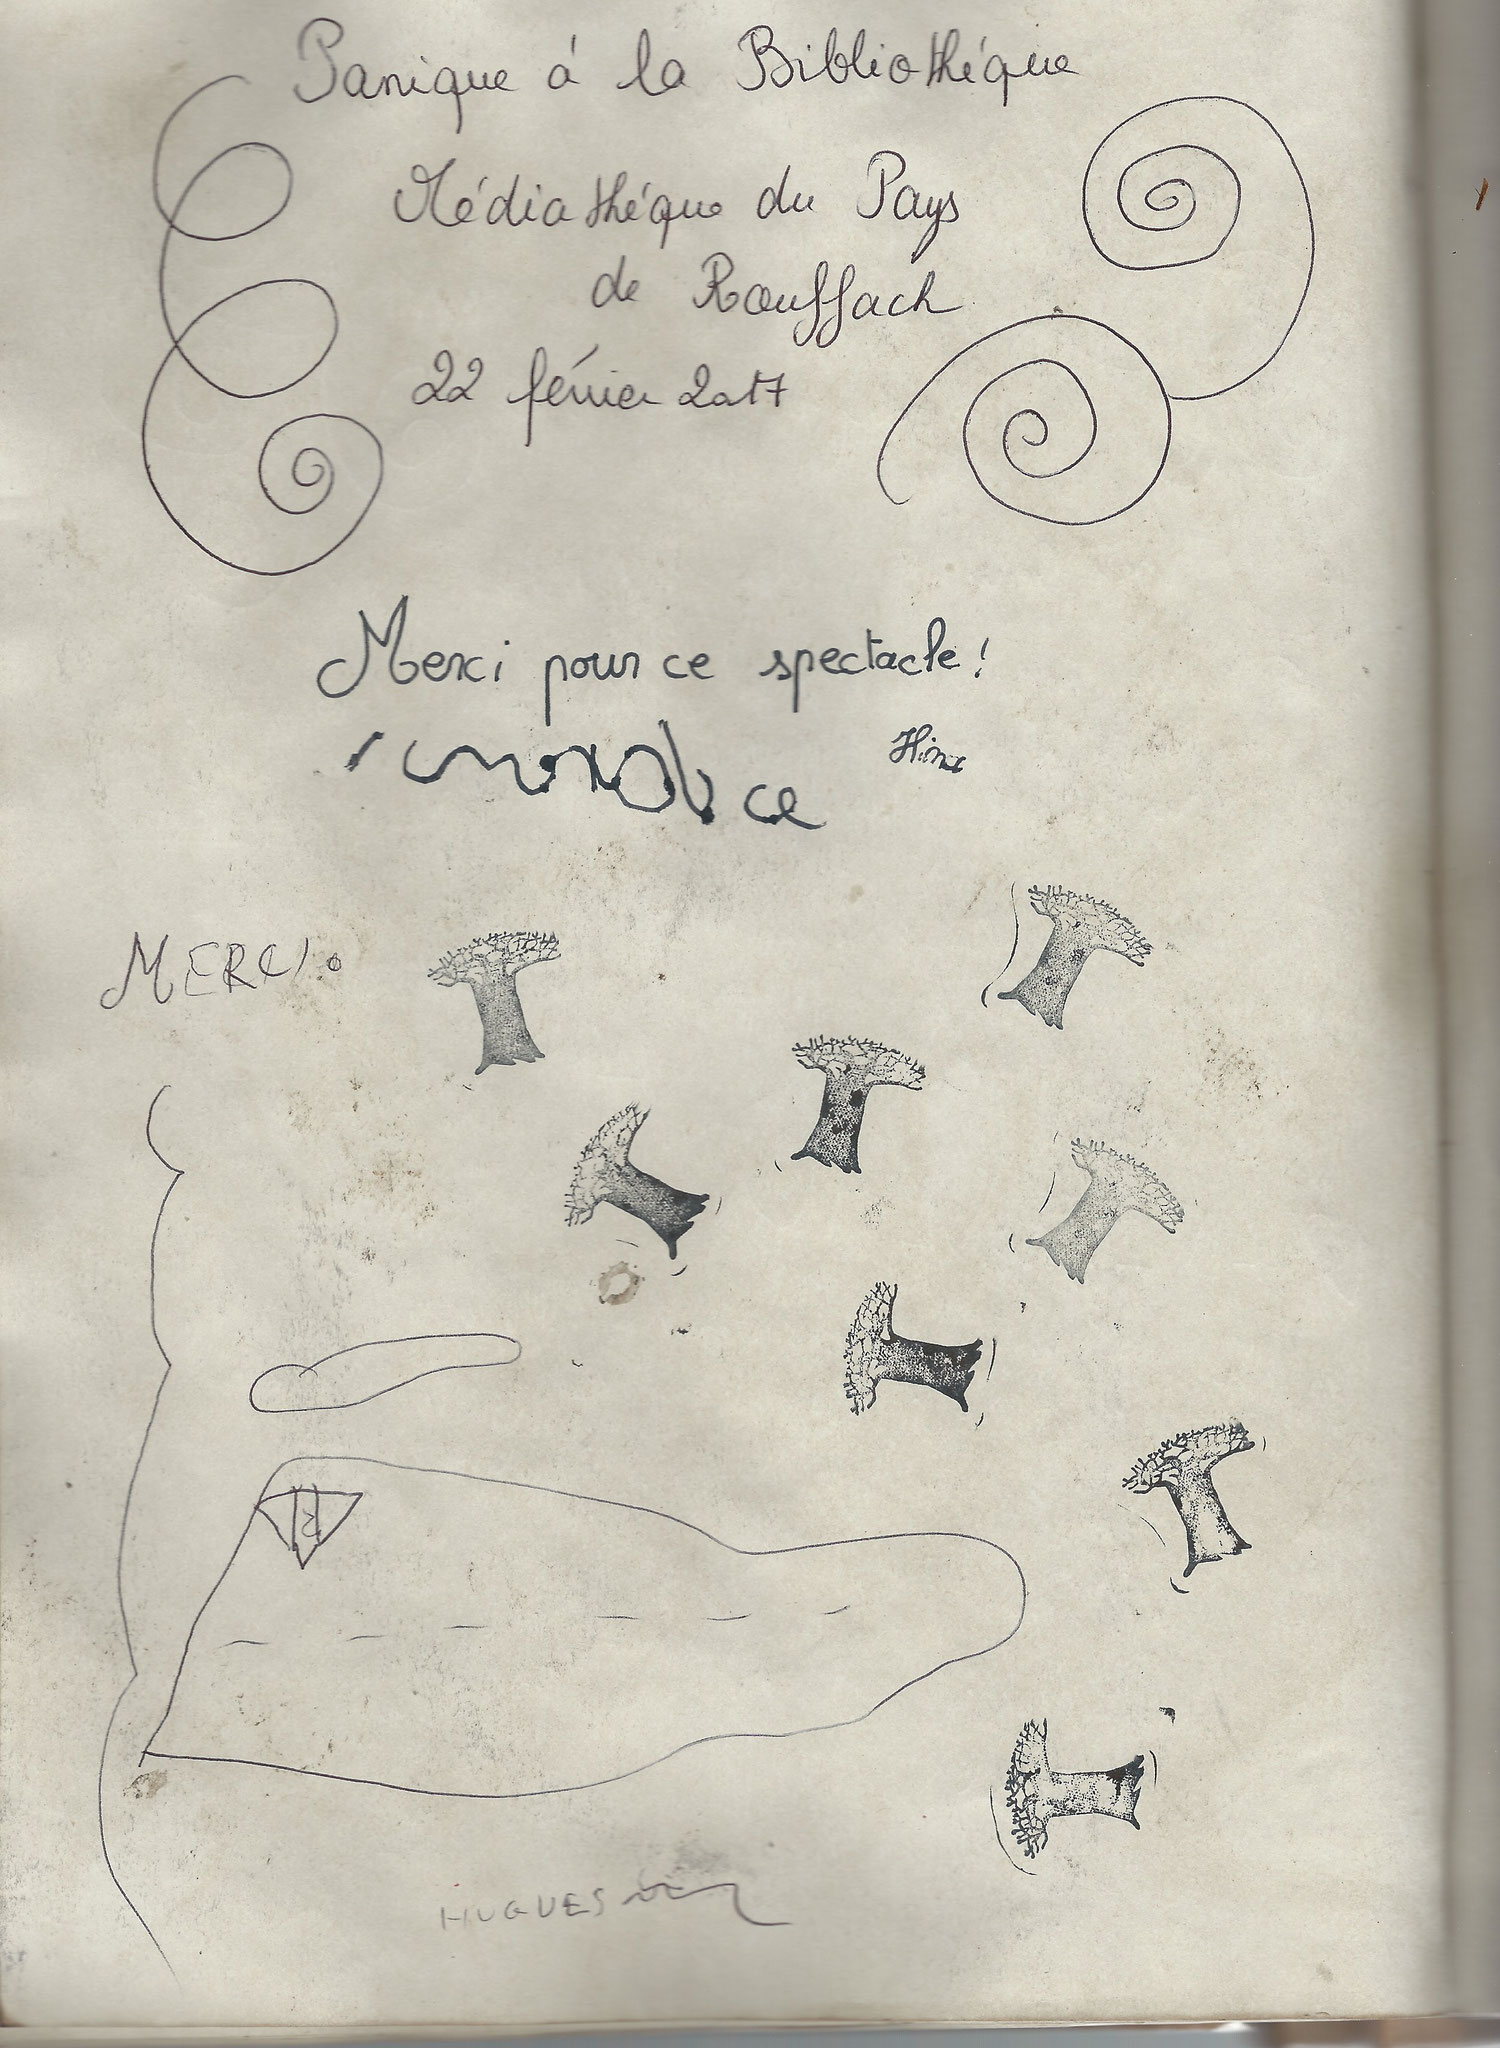 Panique á la Bibliothéque
Médiathéque du Pays
de Rouffach
22 février 2017
Merci pour ce spectacle!
ce
MERCI.
HUGUES